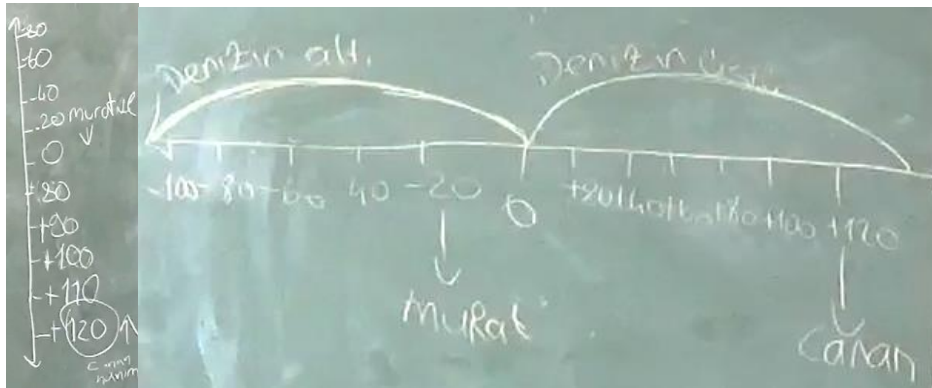 -80
-60
-40
-20
0
+80
+90
+100
+110
+120
Canan
hanım
Denizin altı
Denizin üstü
-100 -80 -60 40 -20 0 +20 +40 +60 +80 +100 +120
Murat
Canan